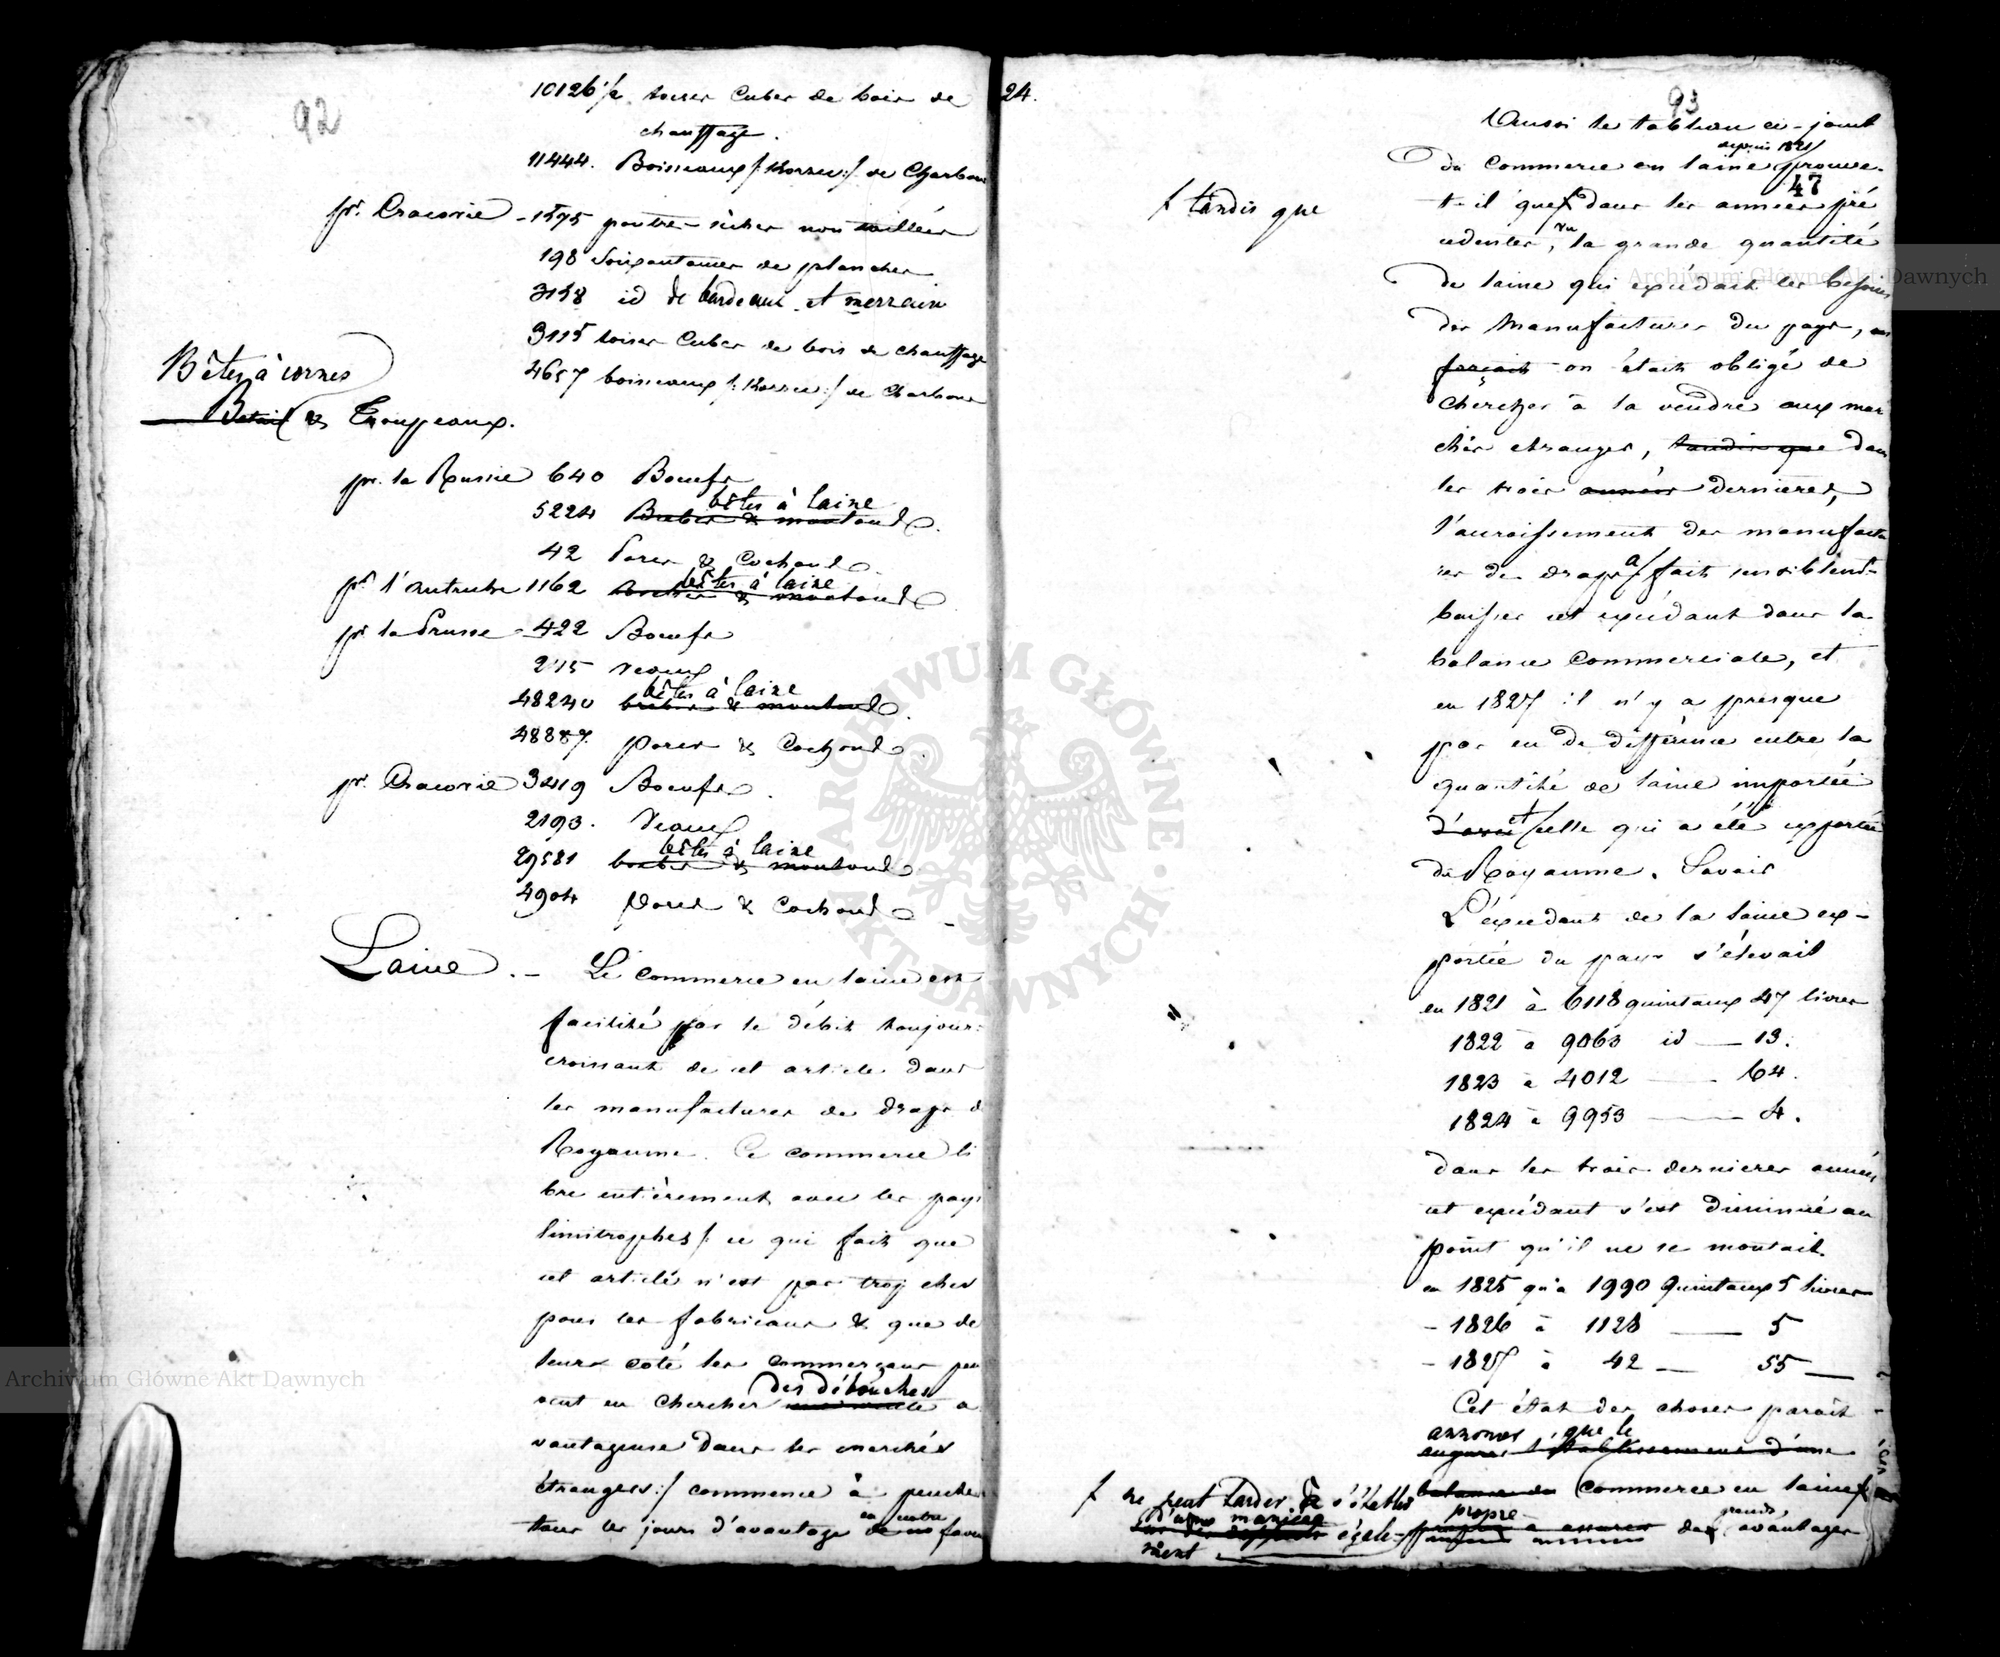 92
10126 1/2 toises cubes de bois de
chauffage.
11444. Boisseaux /: Korzec :/ de Charbon
pr. Cracovie - 1595 poutres sèches non taillées
198 soixantaines de planches
3158 id de bardeaux et merrain
3115 toises cubes de bois de chauffage
4657 boisseaux /: Korzec :/ de Charbons
Bêtes à cornes
Betail & Troupeaux.
pr. la Russie 640 Boeufs
bêtes à laine
5224 Brebis & moutons.
42 Porcs & Cochons.
bêtes à laine
pr l'Autriche 1162 brebis & moutons
pr la Prusse - 422 Boeufs
245 veaux
bêtes à laine
48240 brebis & moutons.
48887. porcs & Cochons.
pr. Cracovie 3419 Boeufs.
2193. Veaux
bêtes à laine
29581 brebis & moutons
4904 porcs & Cochons
Laine. - Le commerce en laine est
facilité par le débit toujours
croissant de cet article dans
les manufactures de draps d
Royaume. Ce commerce li
bre entièrement avec les pays
limitrophes /: ce qui fait que
cet article n'est pas trop cher
pour les fabricans & que de
leurs coté les commerçans peu
des débouchés
vent en chercher a
vantageuse dans les marchés
étrangers :/ commence à pencher
en notre
tous les jours d'avantage de nos faveu
24.
93
Aussi le tableau ci-joint
depuis 1821
du commerce en laine prouve-
47
t-il que dans les années pré
tandis que
vu
cedentes, la grande quantité
de laine qui excédait les besoins
des manufactures du pays, on
forçait on était obligé de
chercher à la vendre aux mar
chés etranger, tandis que dans
les trois années dernieres,
l'accroissement des manufactu
a
res de draps fait sensiblemt
baisser cet excédant dans la
balance commerciale, et
en 1827 il n'y a presque
pas eu de différence entre la
quantité de laine importée
et
d'avec celle qui a été exportée
du Royaume. Savoir
L'excedant de la laine ex-
portée du pays s'élevait
en 1821 à 6118 quintaux 47 livres
1822 à 9063 id — 13.
1823 à 4012 — 64.
1824 à 9953 — 4.
dans les trois dernieres années
cet excédant s'est diminué au
point qu'il ne se montait
en 1825 qu'à 1990 Quintaux 5 livres
- 1826 à 1128 — 5
- 1827 à 42 — 55 —
Cet état des choses parait
annoncer que le
augurer l'établissement d'une
balance du commerce en laine
ne peut tarder à s'établir
d'une manière
propre
grands
égale- propre à assurer des avantages
ment